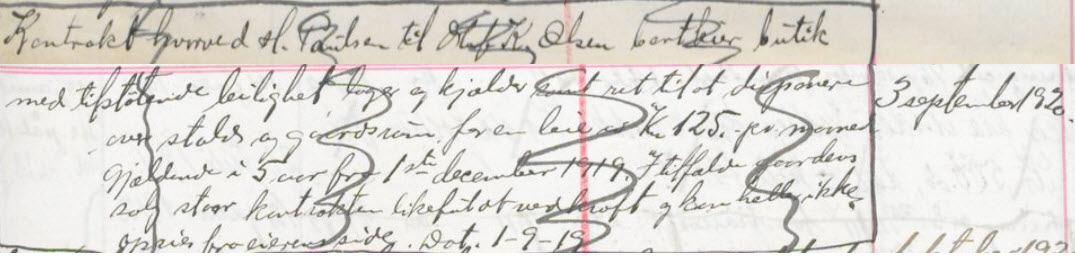 Kontrakt hvorved H. Paulsen til Olaf K. Olsen bortleier butik
med tilstøtende leilighet lager og kjælder samt ret til at disponere
3 september 1920.
over stald og gaardsrum for en leie av Kr. 125.- pr. maaned
gjældende i 5 aar fra 1ste december 1919. I tilfælde gaardens
salg staar kontrakten likefuldt ved kraft og kan heller ikke
opsies fra eierens side. Dat. 1-9-19